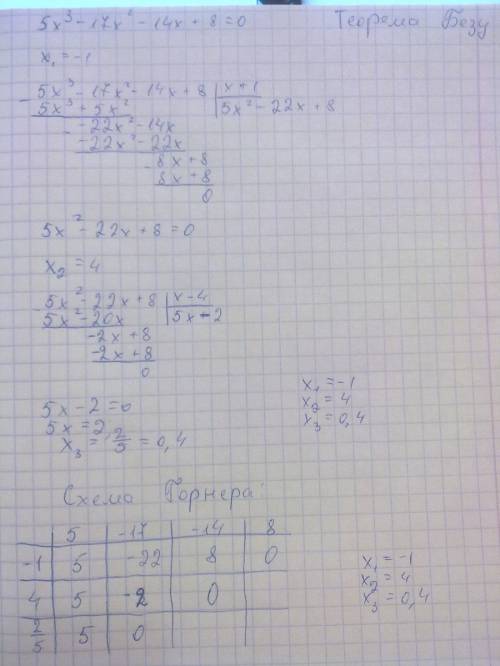 5x³ - 17x² - 14x + 8 = 0   Теорема Безу
x₁ = -1
5x³ - 17x² - 14x + 8 | x + 1
5x³ + 5x² | 5x² - 22x + 8
- -22x² - 14x
-22x² - 22x
- 8x + 8
8x + 8
0
5x² - 22x + 8 = 0
x₂ = 4
5x² - 22x + 8 | x - 4
5x² - 20x | 5x - 2
-2x + 8
-2x + 8
0
5x - 2 = 0
5x = 2
x₃ = 2/5 = 0,4
x₁ = -1
x₂ = 4
x₃ = 0,4
Схема Горнера
5 -17 -14 8
-1 5 -22 8 0
4 5 -2 0
2/5 5 0
x₁ = -1
x₂ = 4
x₃ = 0,4